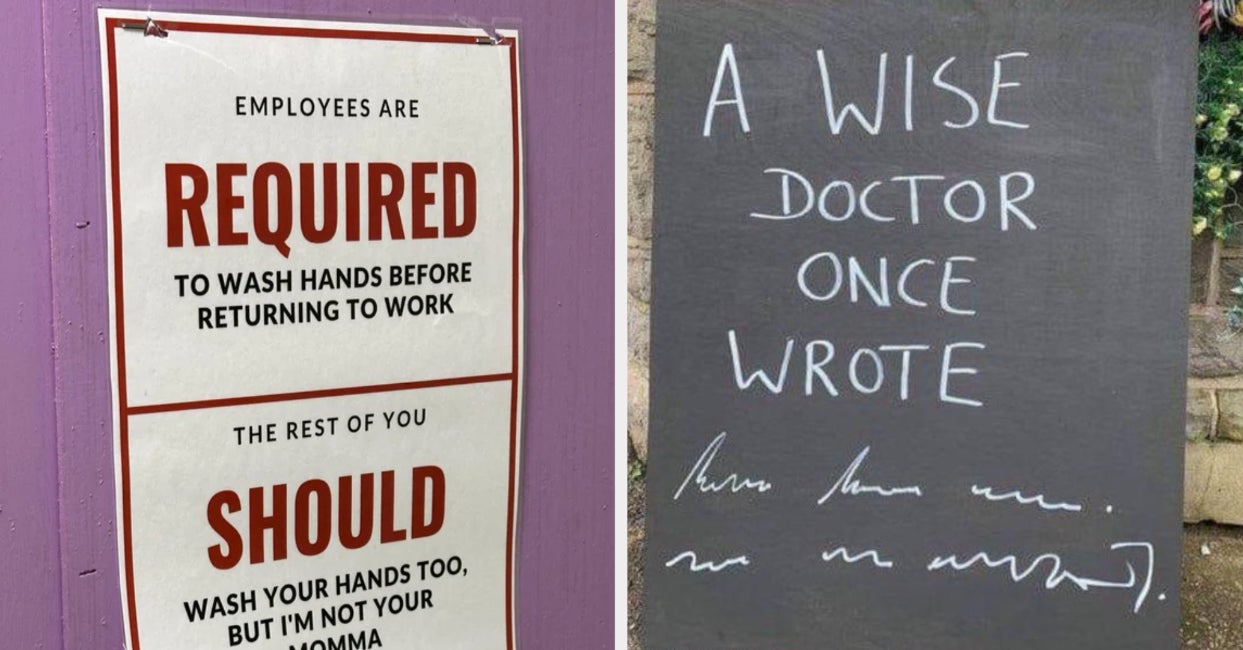 EMPLOYEES ARE
REQUIRED
TO WASH HANDS BEFORE
RETURNING TO WORK
THE REST OF YOU
SHOULD
WASH YOUR HANDS TOO,
BUT I'M NOT YOUR
MOMMA
A WISE
DOCTOR
ONCE
WROTE